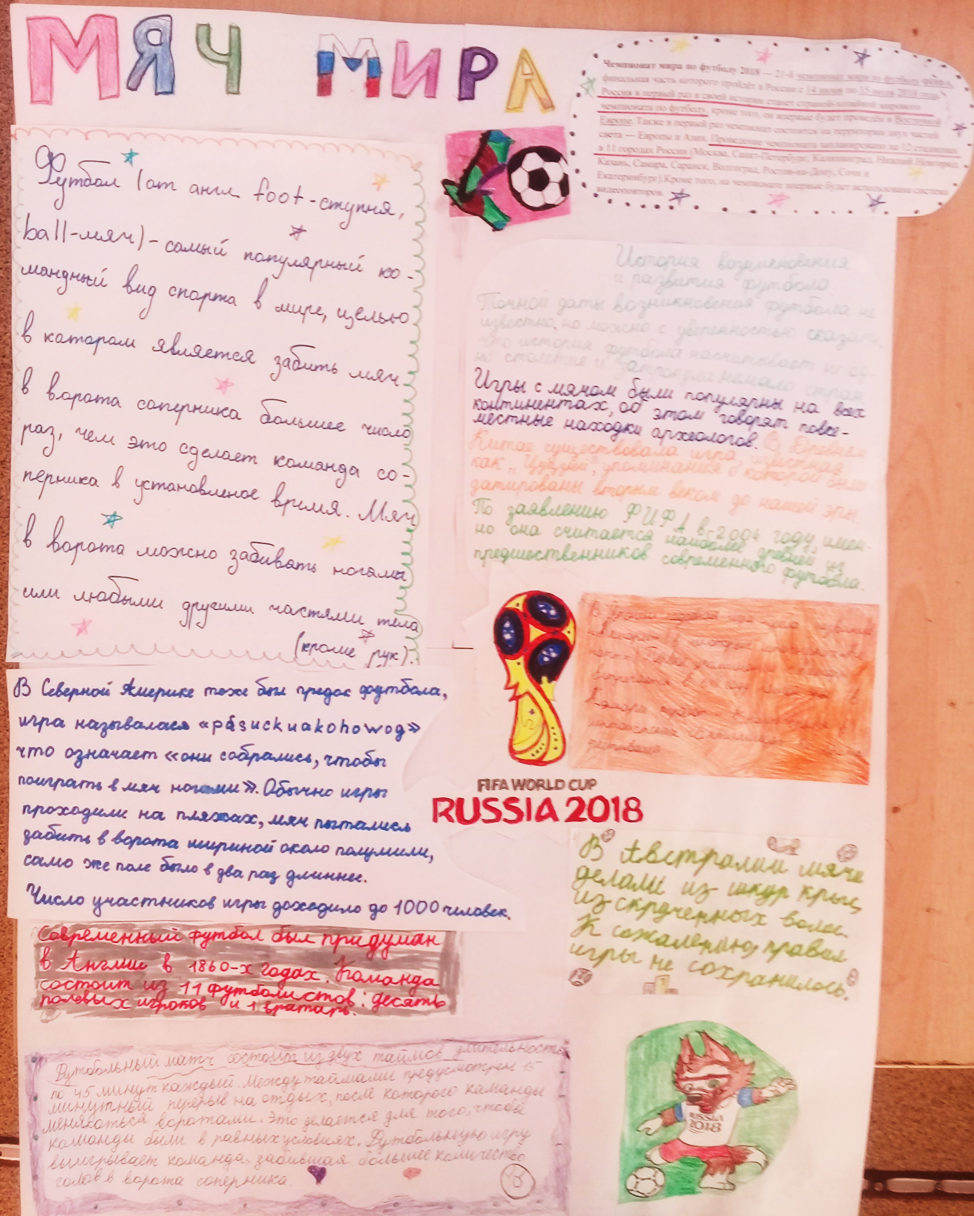 МЯЧ МИРА
Чемпионат мира по футболу 2018 — 21-й чемпионат мира по футболу ФИФА,
финальная часть которого пройдёт в России с 14 июня по 15 июля 2018 года.
Россия в первый раз в своей истории станет страной-хозяйкой мирового
чемпионата по футболу, кроме того, он впервые будет проведён в Восточной
Европе. Также в первый раз чемпионат состоится на территории двух частей
света — Европы и Азии. Проведение чемпионата запланировано на 12 стадионах
в 11 городах России (Москва, Санкт-Петербург, Калининград, Нижний Новгород,
Казань, Самара, Саранск, Волгоград, Ростов-на-Дону, Сочи и
Екатеринбург).Кроме того, на чемпионате впервые будет
видеоповторов.
Футбол (от англ. foot-ступня,
ball-мяч)-самый популярный ко-
мандный вид спорта в мире, целью
в котором является забить мяч
в ворота соперника большее число
раз, чем это сделает команда со-
перника в установленое время. Мяч
в ворота можно забивать ногами
или любыми другими частями тела
(кроме рук).
История возникновения
и развития футбола
Точной даты возникновения футбола не
известно, но можно с уверенностью сказать
что история футбола насчитывает не од-
но столетие и затронула немало стран.
Игры с мячом были популярны на всех
континентах, об этом говорят повсе-
местные находки археологов. В Древнем
Китае существовала игра, известная
как „Цуцзюй", упоминания о которой были
датированы вторым веком до нашей эры.
По заявлению ФИФА в 2004 году, имен-
но она считается наиболее древней из
предшественников современного футбола.
В Северной Америке тоже был предок футбола,
игра называлась «pasuckuakohowog»
что означает «они собрались, чтобы
поиграть в мяч ногами». Обычно игры
проходили на пляжах, мяч пытались
забить в ворота шириной около полумили,
само же поле было в два раз длиннее.
Число участников игры доходило до 1000 человек.
FIFA WORLD CUP
RUSSIA 2018
В Австралии мячи
делали из шкур крыс,
из скрученных волос.
К сожалению, правил
игры не сохранилось.
Современный футбол был придуман
в Англии в 1860-х годах. Команда
состоит из 11 футболистов: десять
полевых игроков и 1 вратарь.
Футбольный матч состоит из двух таймов длительностью
по 45 минут каждый. Между таймами предусмотрен 15
минутный перерыв на отдых, после которого команды
меняються воротами. Это делается для того, чтобы
команды были в равных условиях. Футбольную игру
выигрывает команда, забившая большее количество
голов в ворота соперника.
RUSSIA
2018